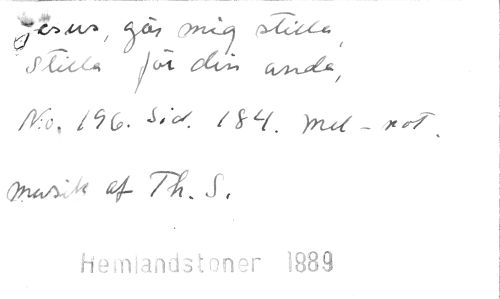 Jesus, gör mig stilla,
Stilla för din anda,
N:o. 196. Sid. 184. Mel-not.
Musik af Th. S.
Hemlandstoner 1889